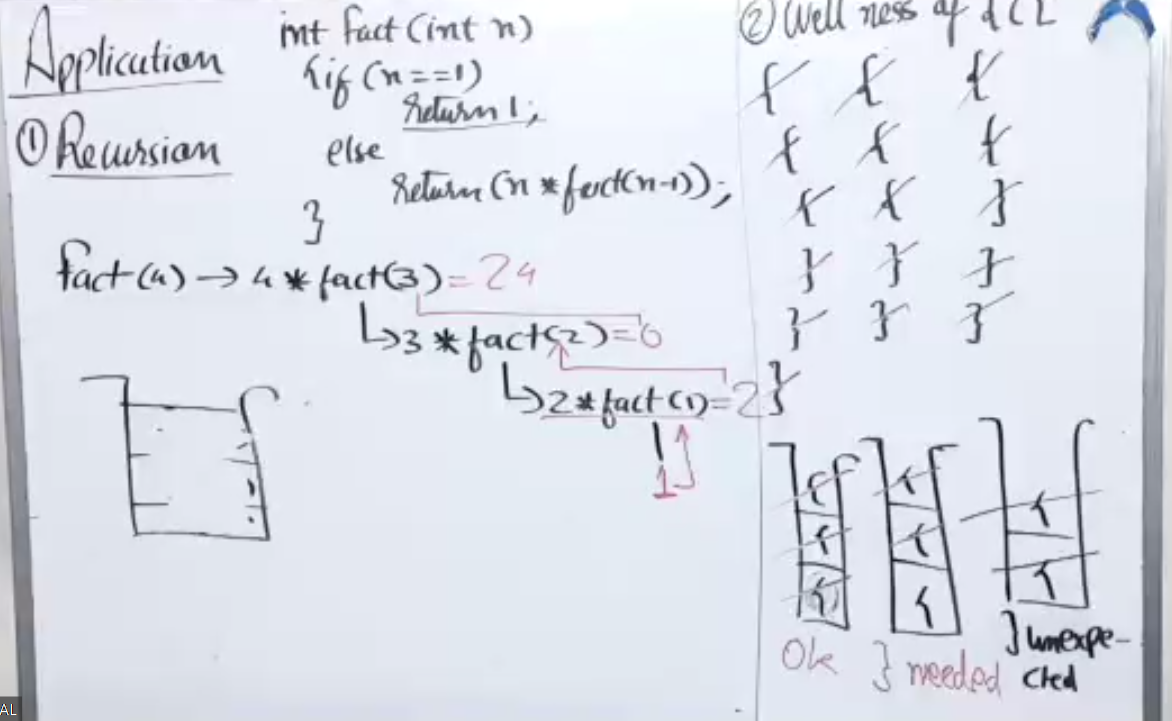 Application
① Recursion
int fact(int n)
{if (n==1)
return 1;
else
return (n*fact(n-1));
}
fact(4) → 4 * fact(3) = 24
↳ 3 * fact(2) = 6
↳ 2 * fact(1) = 2
1
② Well ness of
{ { {
{ { {
{ { }
} } }
} } }
}
{ { {
{ { {
{ {
Ok
} needed
} unexpe-
cted
AL